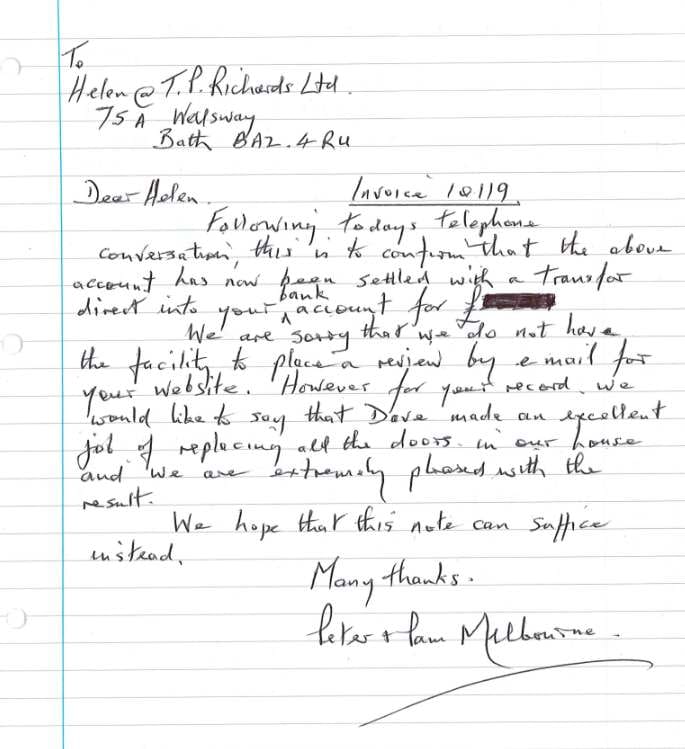 To
Helen @ T.P. Richards Ltd.
75A Wellsway
Bath BA2.4RU
Dear Helen. Invoice 10119
Following todays telephone
conversation, this is to confirm that the above
account has now been settled with a transfer
direct into your bank account for £
We are sorry that we do not have
the facility to place a review by email for
your website. However for your record, we
would like to say that Dave made an excellent
job of replacing all the doors in our house
and we are extremely pleased with the
result.
We hope that this note can suffice
instead.
Many thanks.
Peter & Pam Melbourne.